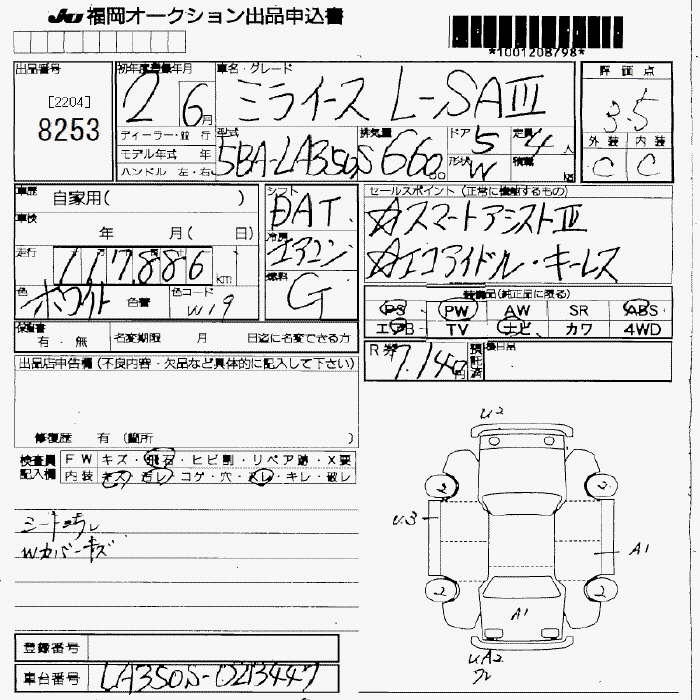 JU 福岡オークション出品申込書
*1001208798*
出品番号
[2204]
8253
初年度登録年月
2 6月
ディーラー・並 行
モデル年式 年
ハンドル 左・右
車名・グレード
ミライース L-SAⅢ
型式
5BA-LA350S
排気量
660 cc
ドア 5
形状 W
定員 4 人
積載 kg
評価点
3.5
外装 内装
C C
車歴
自家用( )
車検
年 月( 日)
走行
117,886 km
色 ホワイト 色替 色コード W19
シフト
DAT
冷房
エアコン
燃料
G
セールスポイント (正常に機能するもの)
☆スマートアシストⅢ
☆エコアイドル・キーレス
装備品(純正品に限る)
PS PW AW SR ABS
エアB TV ナビ カワ 4WD
保証書
有・無 名変期限 月 日迄に名変できる方
R券 7,140円 預託済
出品店申告欄(不良内容・欠品など具体的に記入して下さい)
修復歴 有(箇所 )
検査員記入欄
FW キズ・飛石・ヒビ割・リペア跡・X要
内装 キズ・汚レ・コゲ・穴・スレ・キレ・破レ
シート汚レ
Wカバーキズ
U2
2 2
U3
A1
2 2
A1
UA2
登録番号
車台番号 LA350S-0213447